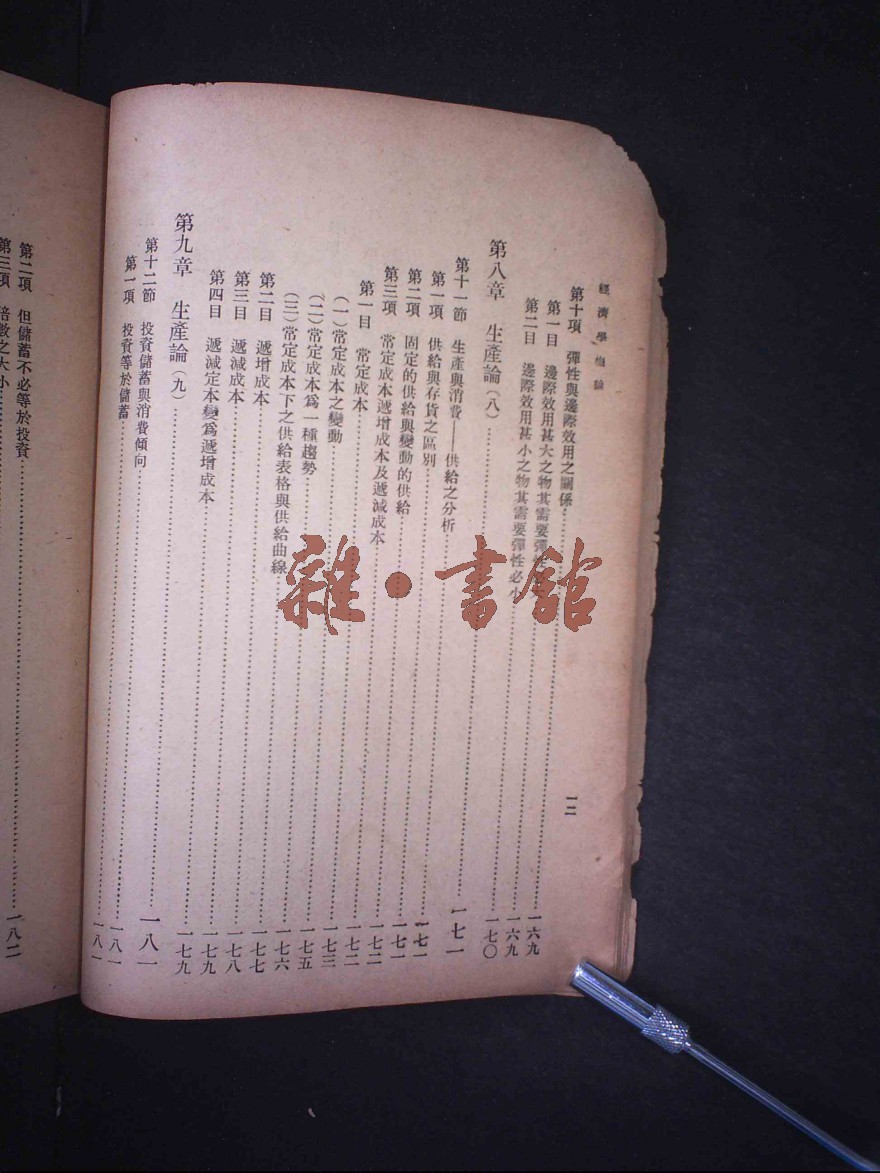 經濟學概論
一二
第十項 彈性與邊際效用之關係……一六九
第一目 邊際效用甚大之物其需要彈性……一六九
第二目 邊際效用甚小之物其需要彈性必小……一七〇
第八章 生產論(八)……一七一
第十一節 生產與消費——供給之分析……一七一
第一項 供給與存貨之區別……一七一
第二項 固定的供給與變動的供給……一七二
第三項 常定成本遞增成本及遞減成本……一七二
第一目 常定成本……一七三
(一)常定成本之變動……一七五
(二)常定成本爲一種趨勢……一七六
(三)常定成本下之供給表格與供給曲線……一七七
第二目 遞增成本……一七八
第三目 遞減成本……一七九
第四目 遞減定本變爲遞增成本……一七九
第九章 生產論(九)……一八一
第十二節 投資儲蓄與消費傾向……一八一
第一項 投資等於儲蓄……一八一
第二項 但儲蓄不必等於投資……一八二
第三項 倍數之大小……
雜·書館